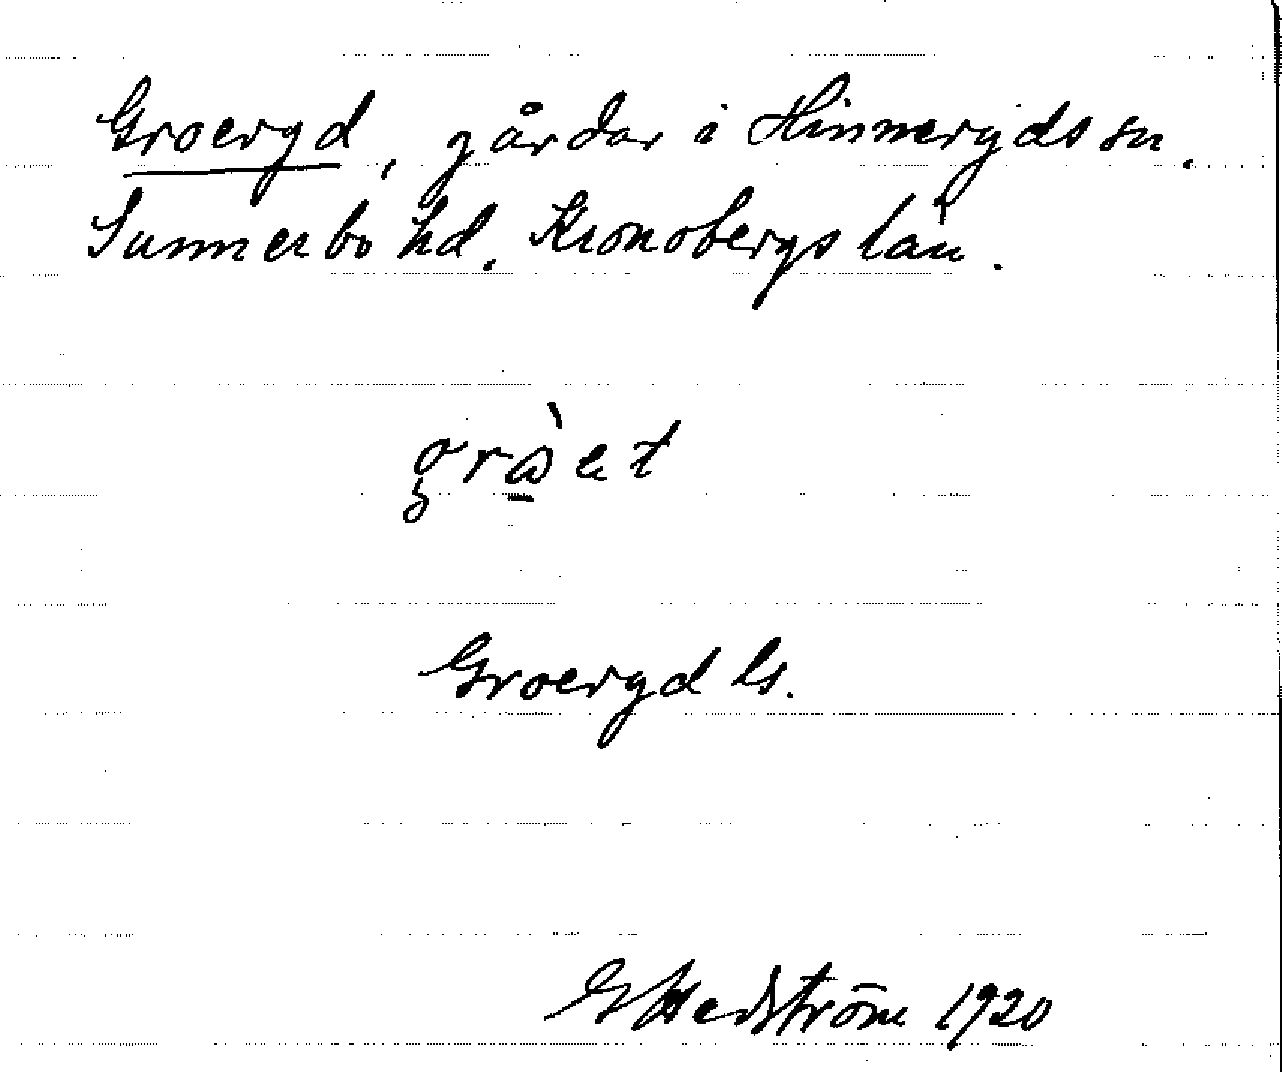 Groeryd, gårdar i Hinneryds sn.
Sunnerbo hd. Kronobergs län.
gròet
Groeryd ls.
G Hedström 1920